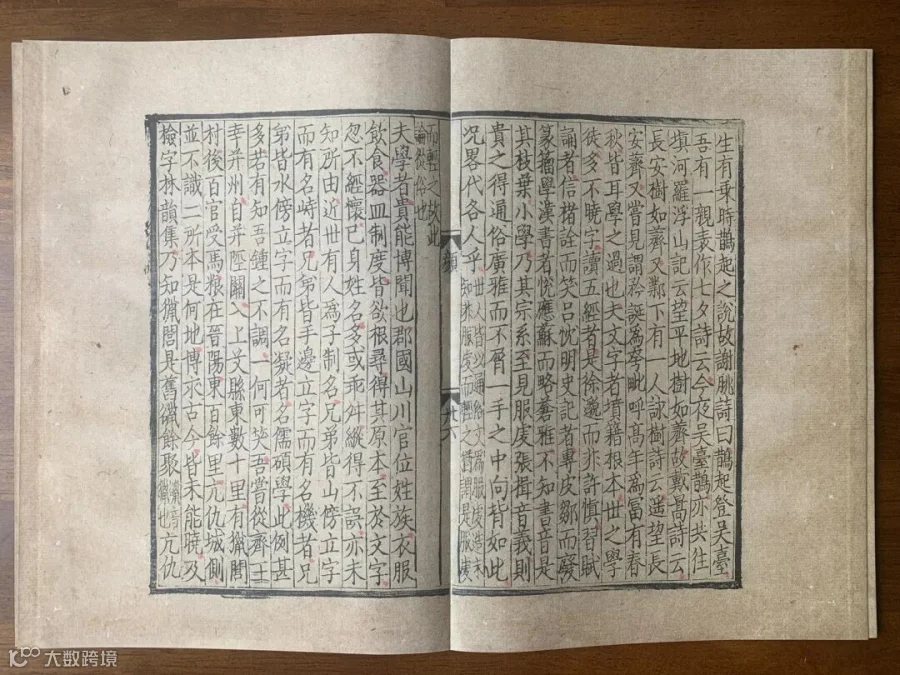 生有乗時鵲起之說故謝朓詩曰鵲起登吳臺
吾有一親表作七夕詩云今夜吳臺鵲亦共往
填河羅浮山記云望平地樹如薺故戴暠詩云
長安樹如薺又鄴下有一人詠樹詩云遥望長
安薺又嘗見謂矜誕爲夸毗呼髙年爲富有春
秋皆耳學之過也夫文字者墳籍根本世之學
徒多不曉字讀五經者是徐邈而非許慎習賦
誦者信楮詮而笑吕忱明史記者專皮鄒而廢
篆籀學漢書者悅應蘇而略蒼雅不知書音是
其枝葉小學乃其宗系至見服虔張揖音義則
貴之得通俗廣雅而不屑一手之中向背如此
况畧代各人乎
世人皆以通俗文爲服虔造未
知非服虔而輕之猶謂是服虔
顔
廿六
而輕之故此
論從俗也
夫學者貴能博聞也郡國山川官位姓族衣服
飲食器皿制度皆欲根尋得其原本至於文字
忽不經懷己身姓名多或乖舛縱得不誤亦未
知所由近世有人爲子制名兄弟皆山傍立字
而有名峙者兄弟皆手邊立字而有名機者兄
弟皆水傍立字而有名凝者名儒碩學此例甚
多若有知吾鍾之不調一何可笑吾嘗從齊王
幸并州自井陘關入上艾縣東數十里有獵閭
村後百官受馬粮在晉陽東百餘里亢仇城側
並不識二所本是何地博求古今皆未能曉及
檢字林韻集乃知獵閭是舊餘聚
獵也
亢仇
大数跨境